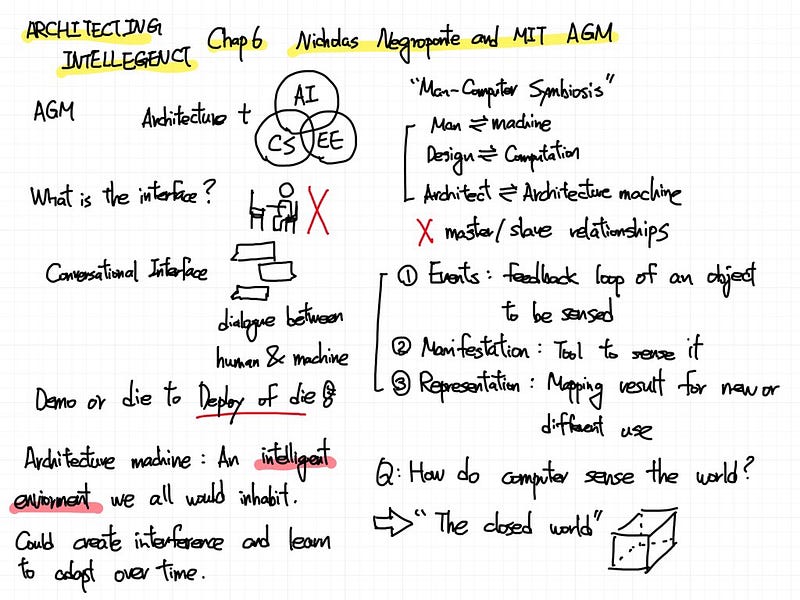 ARCHITECTING
INTELLEGENCT
Chap 6
Nicholas Negroponte and MIT AGM
AGM
Architecture +
AI
CS
EE
What is the interface?
Conversational Interface
dialogue between
human & machine
Demo or die to Deploy of die
Architecture machine : An intelligent
enviorment we all would inhabit.
Could create interference and learn
to adapt over time.
"Man-Computer Symbiosis"
Man ⇌ machine
Design ⇌ Computation
Architect ⇌ Architecture machine
X master/ slave relationships
① Events : feedback loop of an object
to be sensed
② Manifestation : Tool to sense it
③ Representation : Mapping result for new or
different use
Q: How do computer sense the world?
⇨ "The closed world"